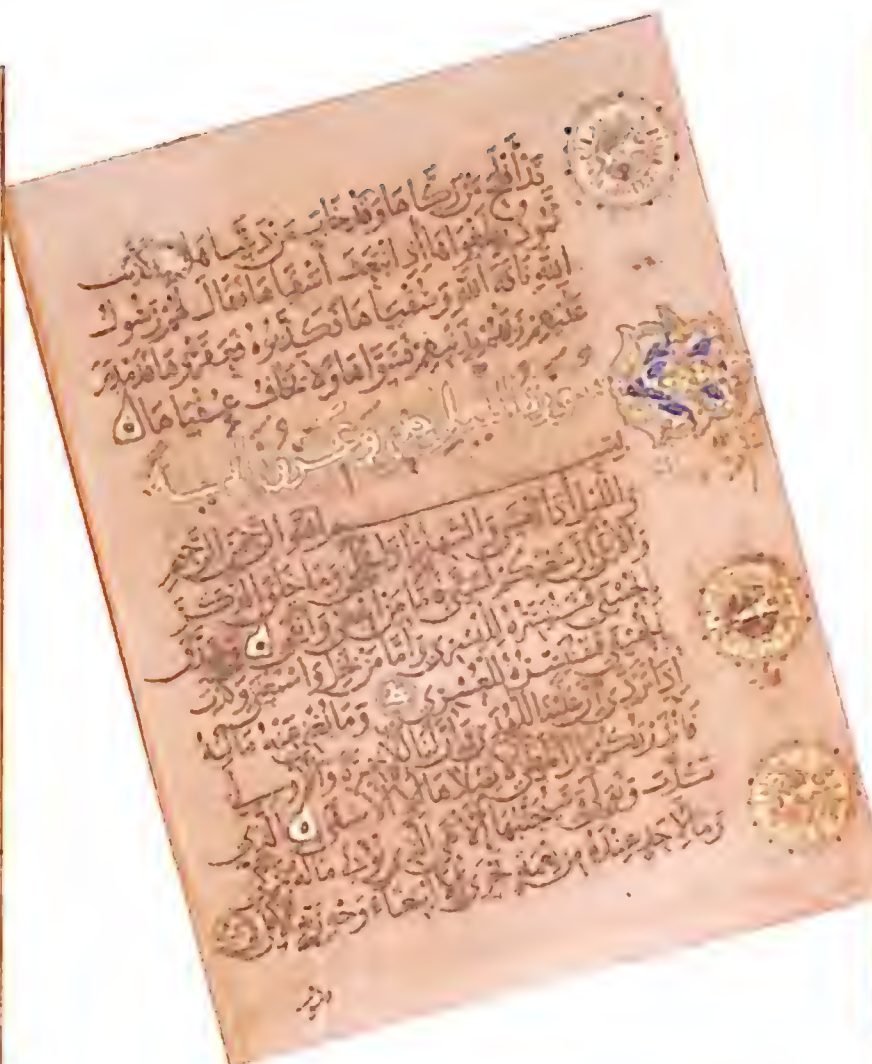 قد أفلح من زكاها وقد خاب من دساها كذبت
ثمود بطغواها إذ انبعث أشقاها فقال لهم رسول
الله ناقة الله وسقياها فكذبوه فعقروها فدمدم
عليهم ربهم بذنبهم فسواها ولا يخاف عقباها
سورة الليل وعشرون آية
بسم الله الرحمن الرحيم
والليل إذا يغشى والنهار إذا تجلى وما خلق الذكر
والأنثى إن سعيكم لشتى فأما من أعطى واتقى وصدق
بالحسنى فسنيسره لليسرى وأما من بخل واستغنى وكذب
بالحسنى فسنيسره للعسرى وما يغني عنه ماله
إذا تردى إن علينا للهدى وإن لنا للآخرة والأولى
فأنذرتكم نارا تلظى لا يصلاها إلا الأشقى الذي
كذب وتولى وسيجنبها الأتقى الذي يؤتي ماله يتزكى
وما لأحد عنده من نعمة تجزى إلا ابتغاء وجه ربه الأعلى